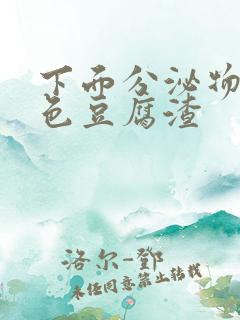 下面分泌物
色豆腐渣
洛尔-邓
未经同意禁止转载